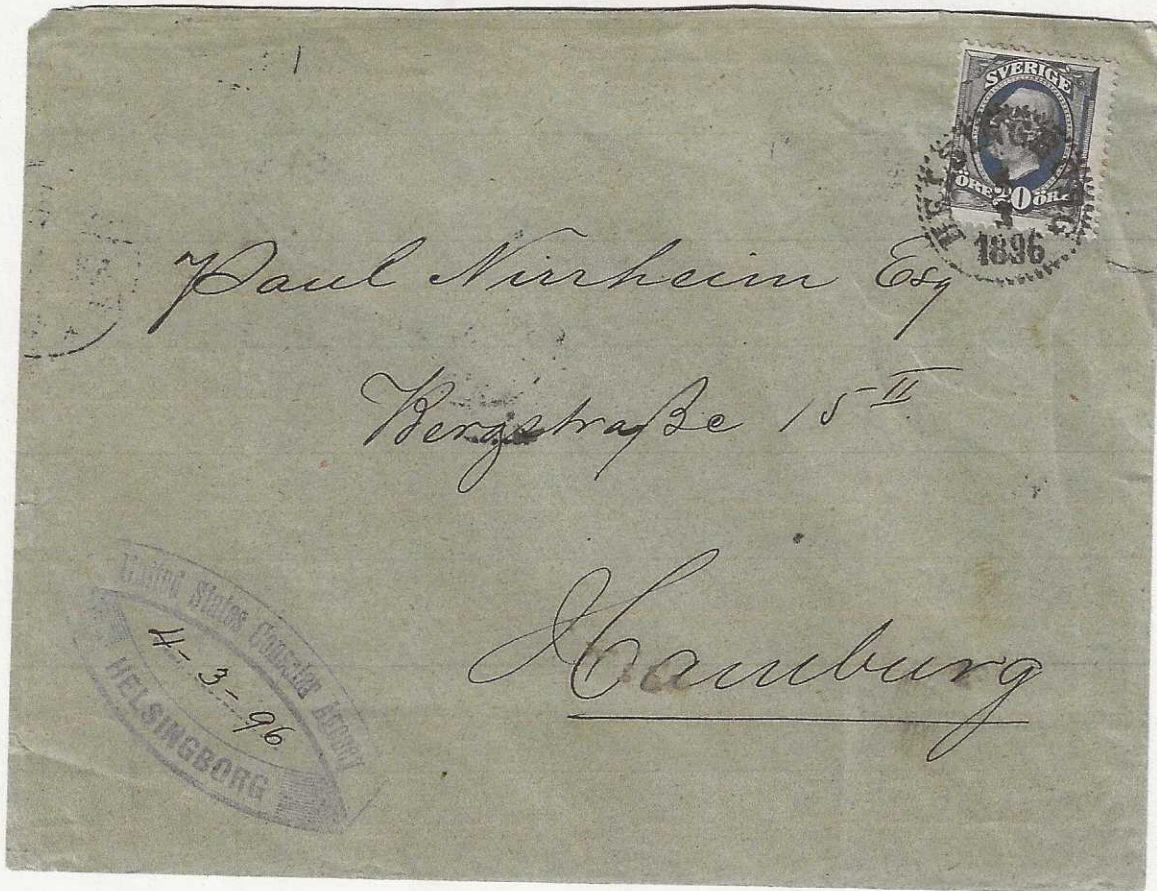 SVERIGE
ÖRE 20 ÖRE
HELSINGBORG
1896
Paul Nirrheim Esq
Bergstraße 15 II
Hamburg
United States Consular Agency
4-3-96
HELSINGBORG